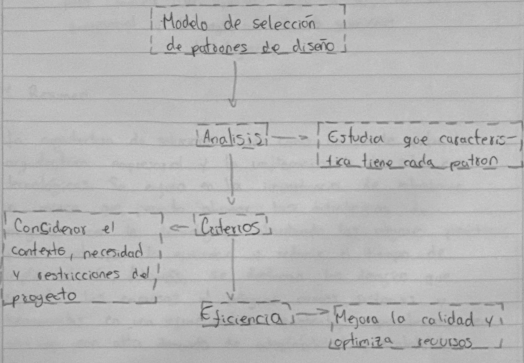 Modelo de selección
de patrones de diseño
Analisis
Estudia que caracterís-
tica tiene cada patron
Criterios
Considerar el
contexto, necesidad
y restricciones del
proyecto
Eficiencia
Mejora la calidad y
optimiza recursos